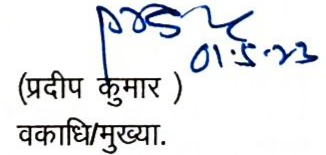 01.5.23
(प्रदीप कुमार )
वकाधि/मुख्या.